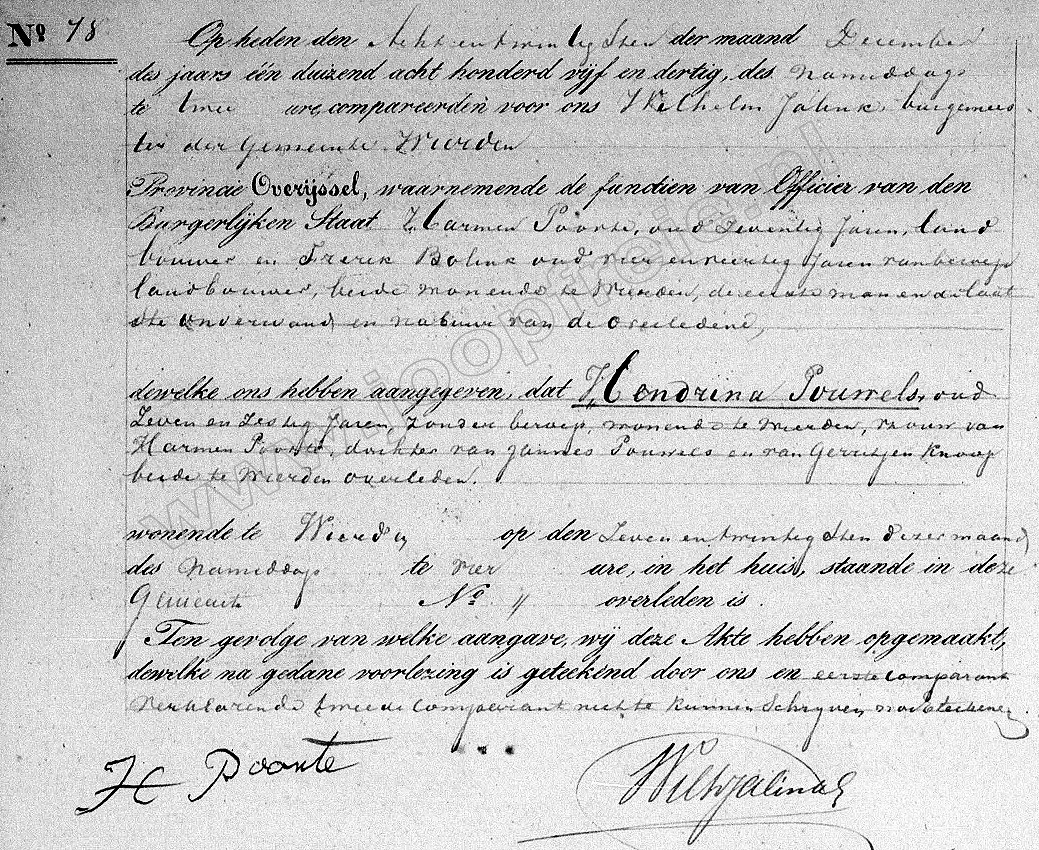 No 78 Op heden den Acht en twintigsten der maand December
des jaars één duizend acht honderd vijf en dertig, des namiddags
te twee ure, compareerden voor ons Wilhelm Jalink, burgemees-
ter der Gemeente Wierden
Provincie Overijssel, waarnemende de functien van Officier van den
Burgerlijken Staat Harmen Poorte, oud Zeventig Jaren, land
bouwer en Frerik Bolink oud vier en veertig Jaren van beroep
landbouwer, beide wonende te Wierden, de eerste man en de laat
ste en nabuur van de overledene,
dewelke ons hebben aangegeven, dat Hendrina Pouwels, oud
Zeven en Zestig Jaren, Zonder beroep, wonende te Wierden, vrouw van
Harmen Poorte, dochter van Jannes Pouwels en van Gerritjen Knoop
beide te Wierden overleden.
wonende te Wierden op den Zeven en twintigsten dezer maand
des Namiddags te vier ure, in het huis, staande in deze
Gemeente No. " overleden is.
Ten gevolge van welke aangave, wij deze Akte hebben opgemaakt,
dewelke na gedane voorlezing is geteekend door ons en eerste comparant
Verklarende tweede Comparant niet te kunnen Schryven noch teekenen
H Poorte
Wilh Jalink
www.joopfreic.nl